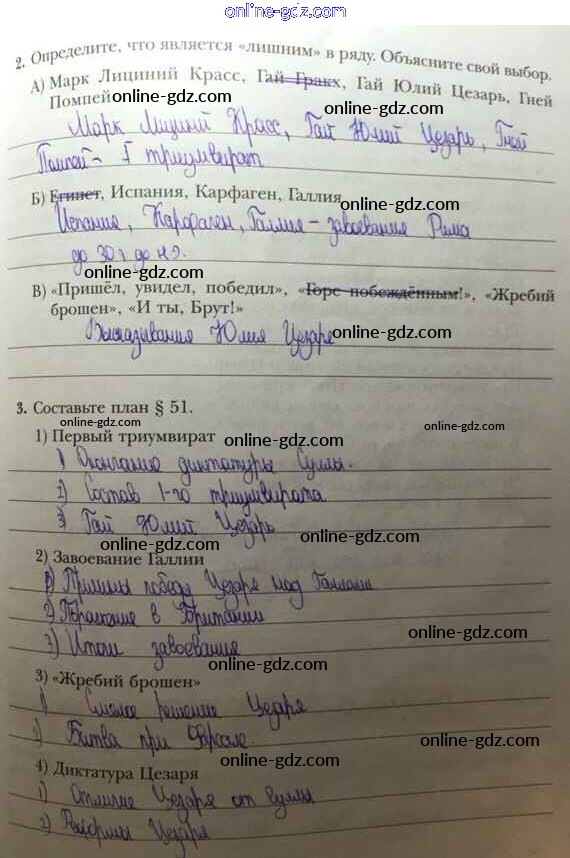 online-gdz.com
2. Определите, что является «лишним» в ряду. Объясните свой выбор.
А) Марк Лициний Красс, Гай Гракх, Гай Юлий Цезарь, Гней
Помпей online-gdz.com
Марк Лициний Красс, Гай Юлий Цезарь, Гней
Помпей – I триумвират
Б) Египет, Испания, Карфаген, Галлия
online-gdz.com
Испания, Карфаген, Галлия – завоевания Рима
до 30 г до н.э.
online-gdz.com
В) «Пришёл, увидел, победил», «Горе побеждённым!», «Жребий
брошен», «И ты, Брут!»
Высказывания Юлия Цезаря online-gdz.com
3. Составьте план § 51.
online-gdz.com online-gdz.com
1) Первый триумвират online-gdz.com
1) Окончание диктатуры Суллы.
2) Состав 1-го триумвирата
3) Гай Юлий Цезарь
online-gdz.com online-gdz.com
2) Завоевание Галлии
1) Причины победы Цезаря над Галлами
2) Поражение в Британии
online-gdz.com
3) Итоги завоевания
online-gdz.com
3) «Жребий брошен»
1) Смелое решение Цезаря
2) Битва при Фарсале.
online-gdz.com
online-gdz.com
4) Диктатура Цезаря
1) Отличие Цезаря от Суллы
online-gdz.com
2) Реформы Цезаря